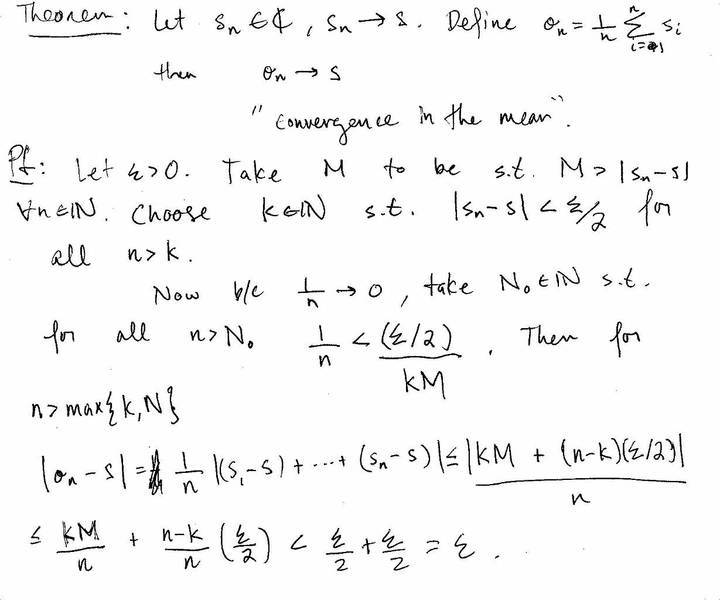 Theorem: Let sₙ ∈ ℂ, sₙ → s. Define σₙ = 1/n ∑_{i=1}^{n} sᵢ
then σₙ → s
"convergence in the mean".
Pf: Let ε>0. Take M to be s.t. M > |sₙ-s|
∀n∈ℕ. Choose k∈ℕ s.t. |sₙ-s| < ε/2 for
all n>k.
Now b/c 1/n → 0, take N₀ ∈ ℕ s.t.
for all n>N₀ 1/n < (ε/2)/kM. Then for
n > max{k,N}
|σₙ-s| = 1/n |(s₁-s) + ... + (sₙ-s)| ≤ |kM + (n-k)(ε/2)|/n
≤ kM/n + n-k/n (ε/2) < ε/2 + ε/2 = ε.